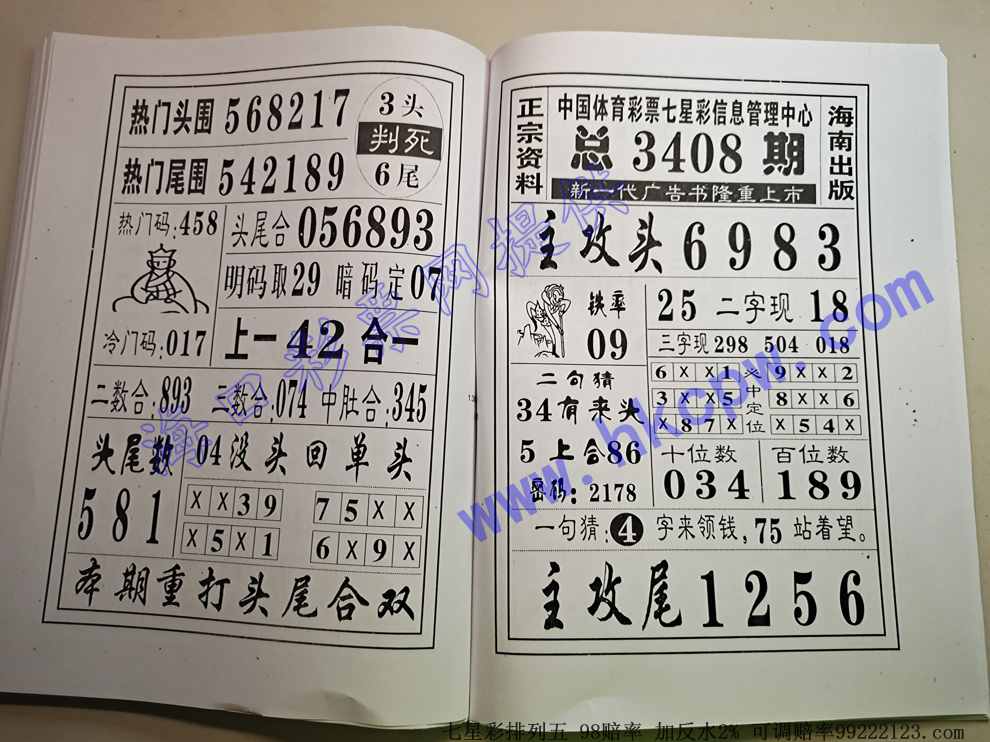 热门头围 568217
3头
判死
6尾
热门尾围 542189
热门码:458
头尾合 056893
明码取29 暗码定07
冷门码:017
上一42合一
二数合:893 三数合:074 中肚合:345
头尾数
581
04没头回单头
XX39 75XX
X5X1 6X9X
本期重打头尾合双
13
正宗资料
中国体育彩票七星彩信息管理中心
总 3408 期
新一代广告书隆重上市
海南出版
主攻头 6983
铁率
09
25 二字现 18
三字现 298 504 018
6XX1 9XX2
3XX5 8XX6
X87X X54X
必中定位
二句猜
34有来头
5上合86
密码:2178
十位数 百位数
034 189
一句猜:4字来领钱,75站着望。
主攻尾 1256
海口彩票网提供
www.hkcpw.com
七星彩排列五 98赔率 加反水2% 可调赔率99222123.com